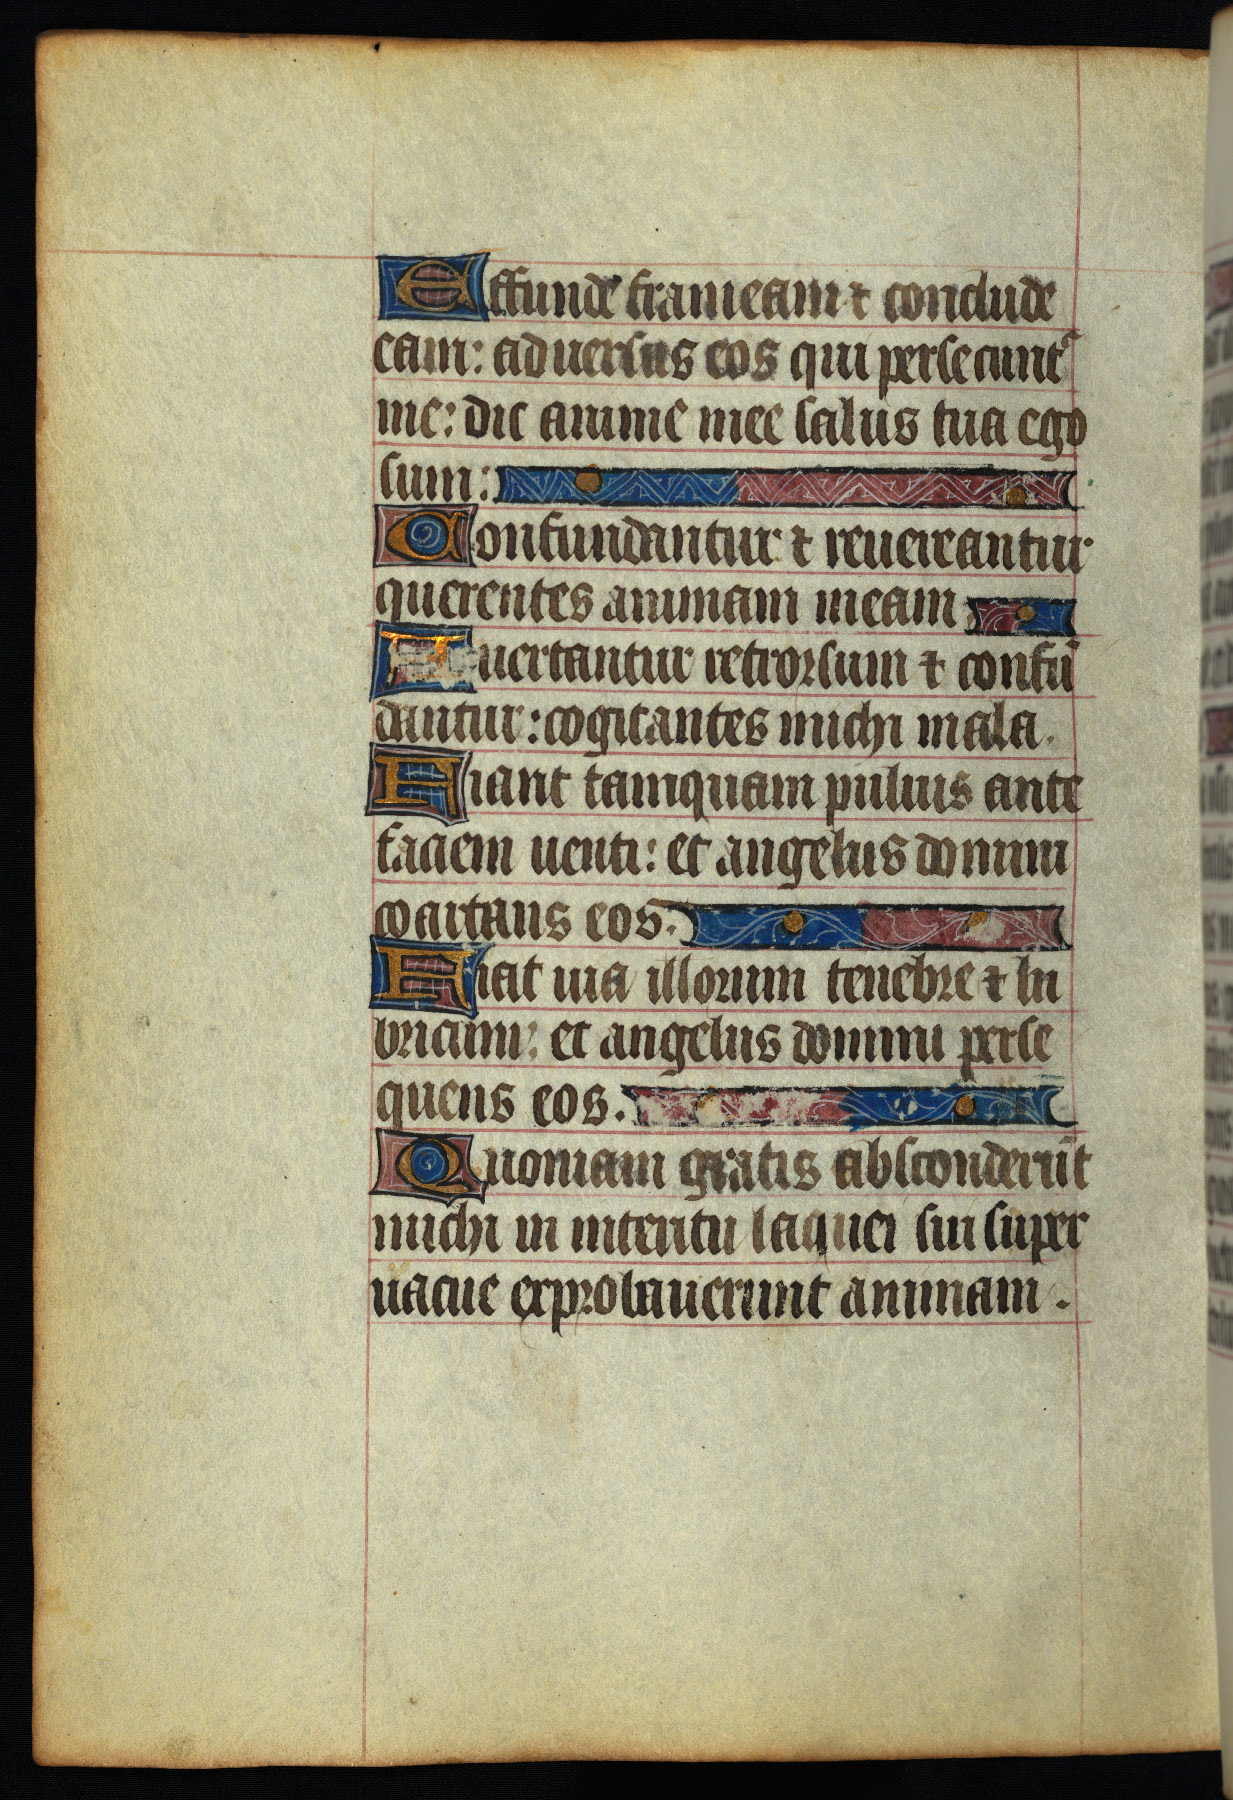 Effunde frameam ⁊ conclude
eam: aduersus eos qui persecunt᷑
me: dic anime mee salus tua ego
sum:
Confundantur ⁊ reuereantur
querentes animam meam
Auertantur retrorsum ⁊ confū
dantur: cogitantes michi mala.
Fiant tamquam puluis ante
faciem uenti: et angelus domini
coartans eos.
Fiat uia illorum tenebre ⁊ lu
bricum: et angelus domini perse
quens eos.
Quoniam gratis absconderūt
michi in interitu laquei sui super
uacue exprobauerunt animam.